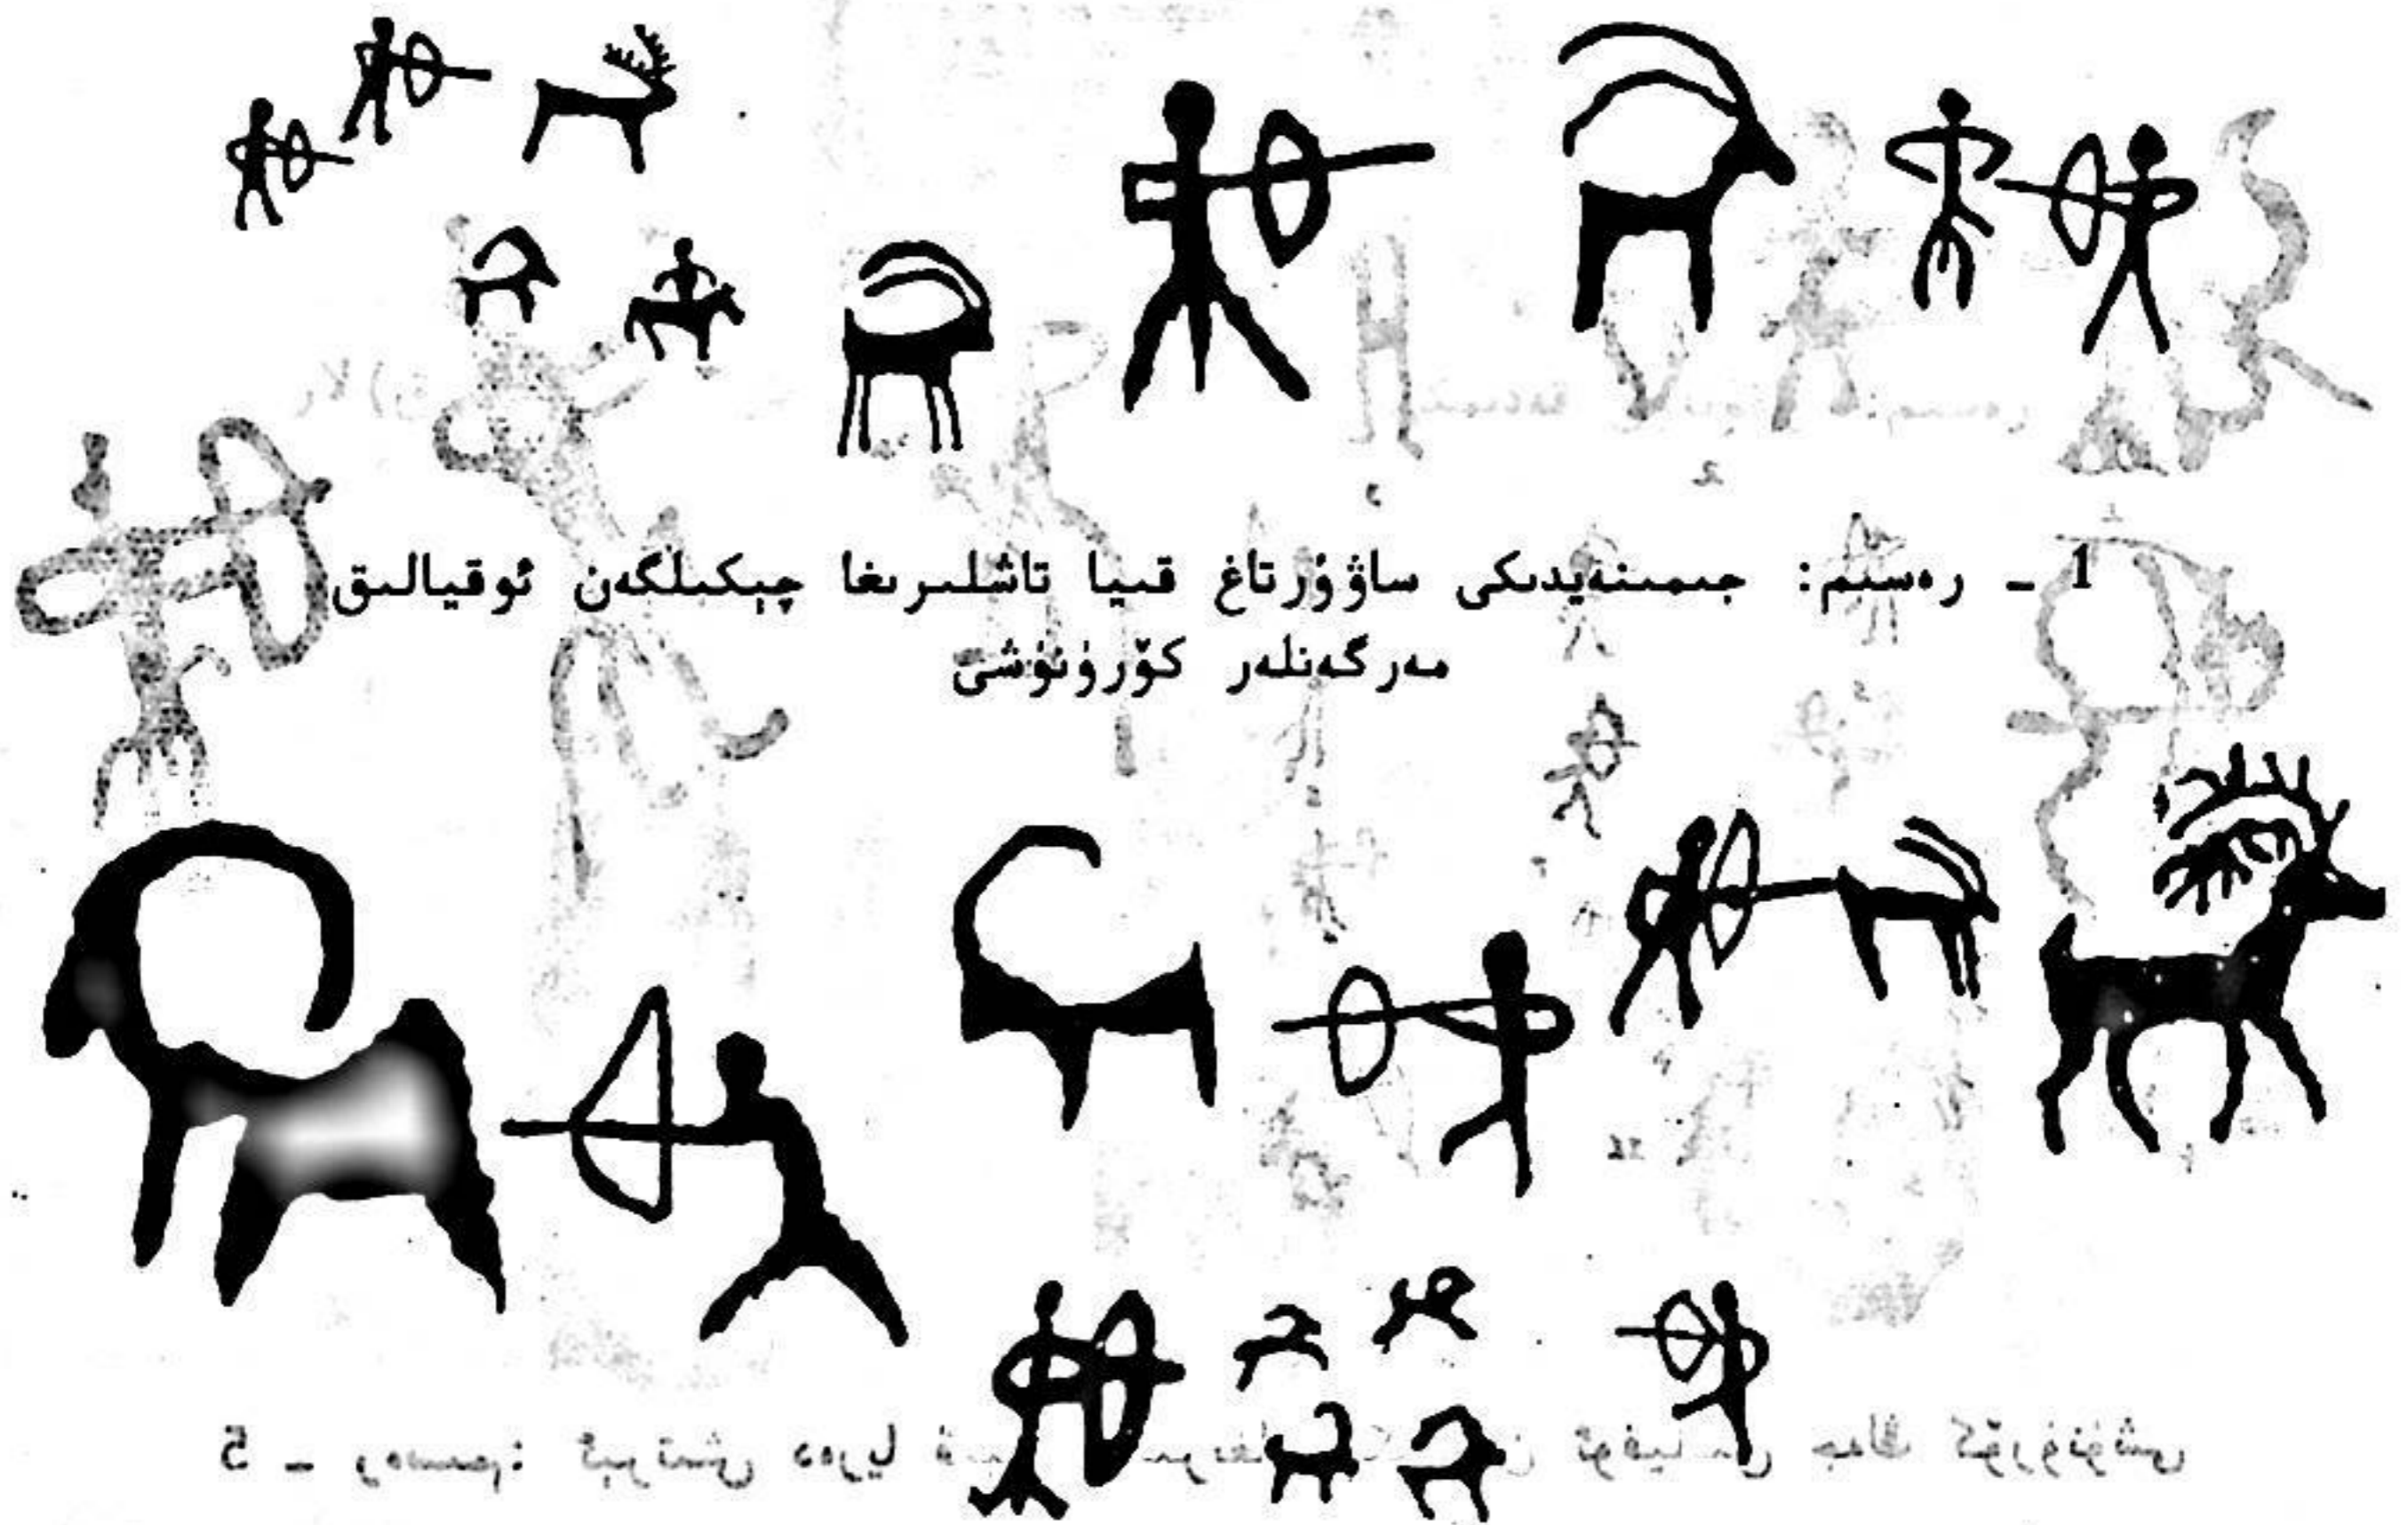 1 ـ رەسىم: جىمىنەيدىكى ساۋۇرتاغ قىيا تاشلىرىغا چېكىلگەن ئوقيالىق
مەرگەنلەر كۆرۈنۈشى